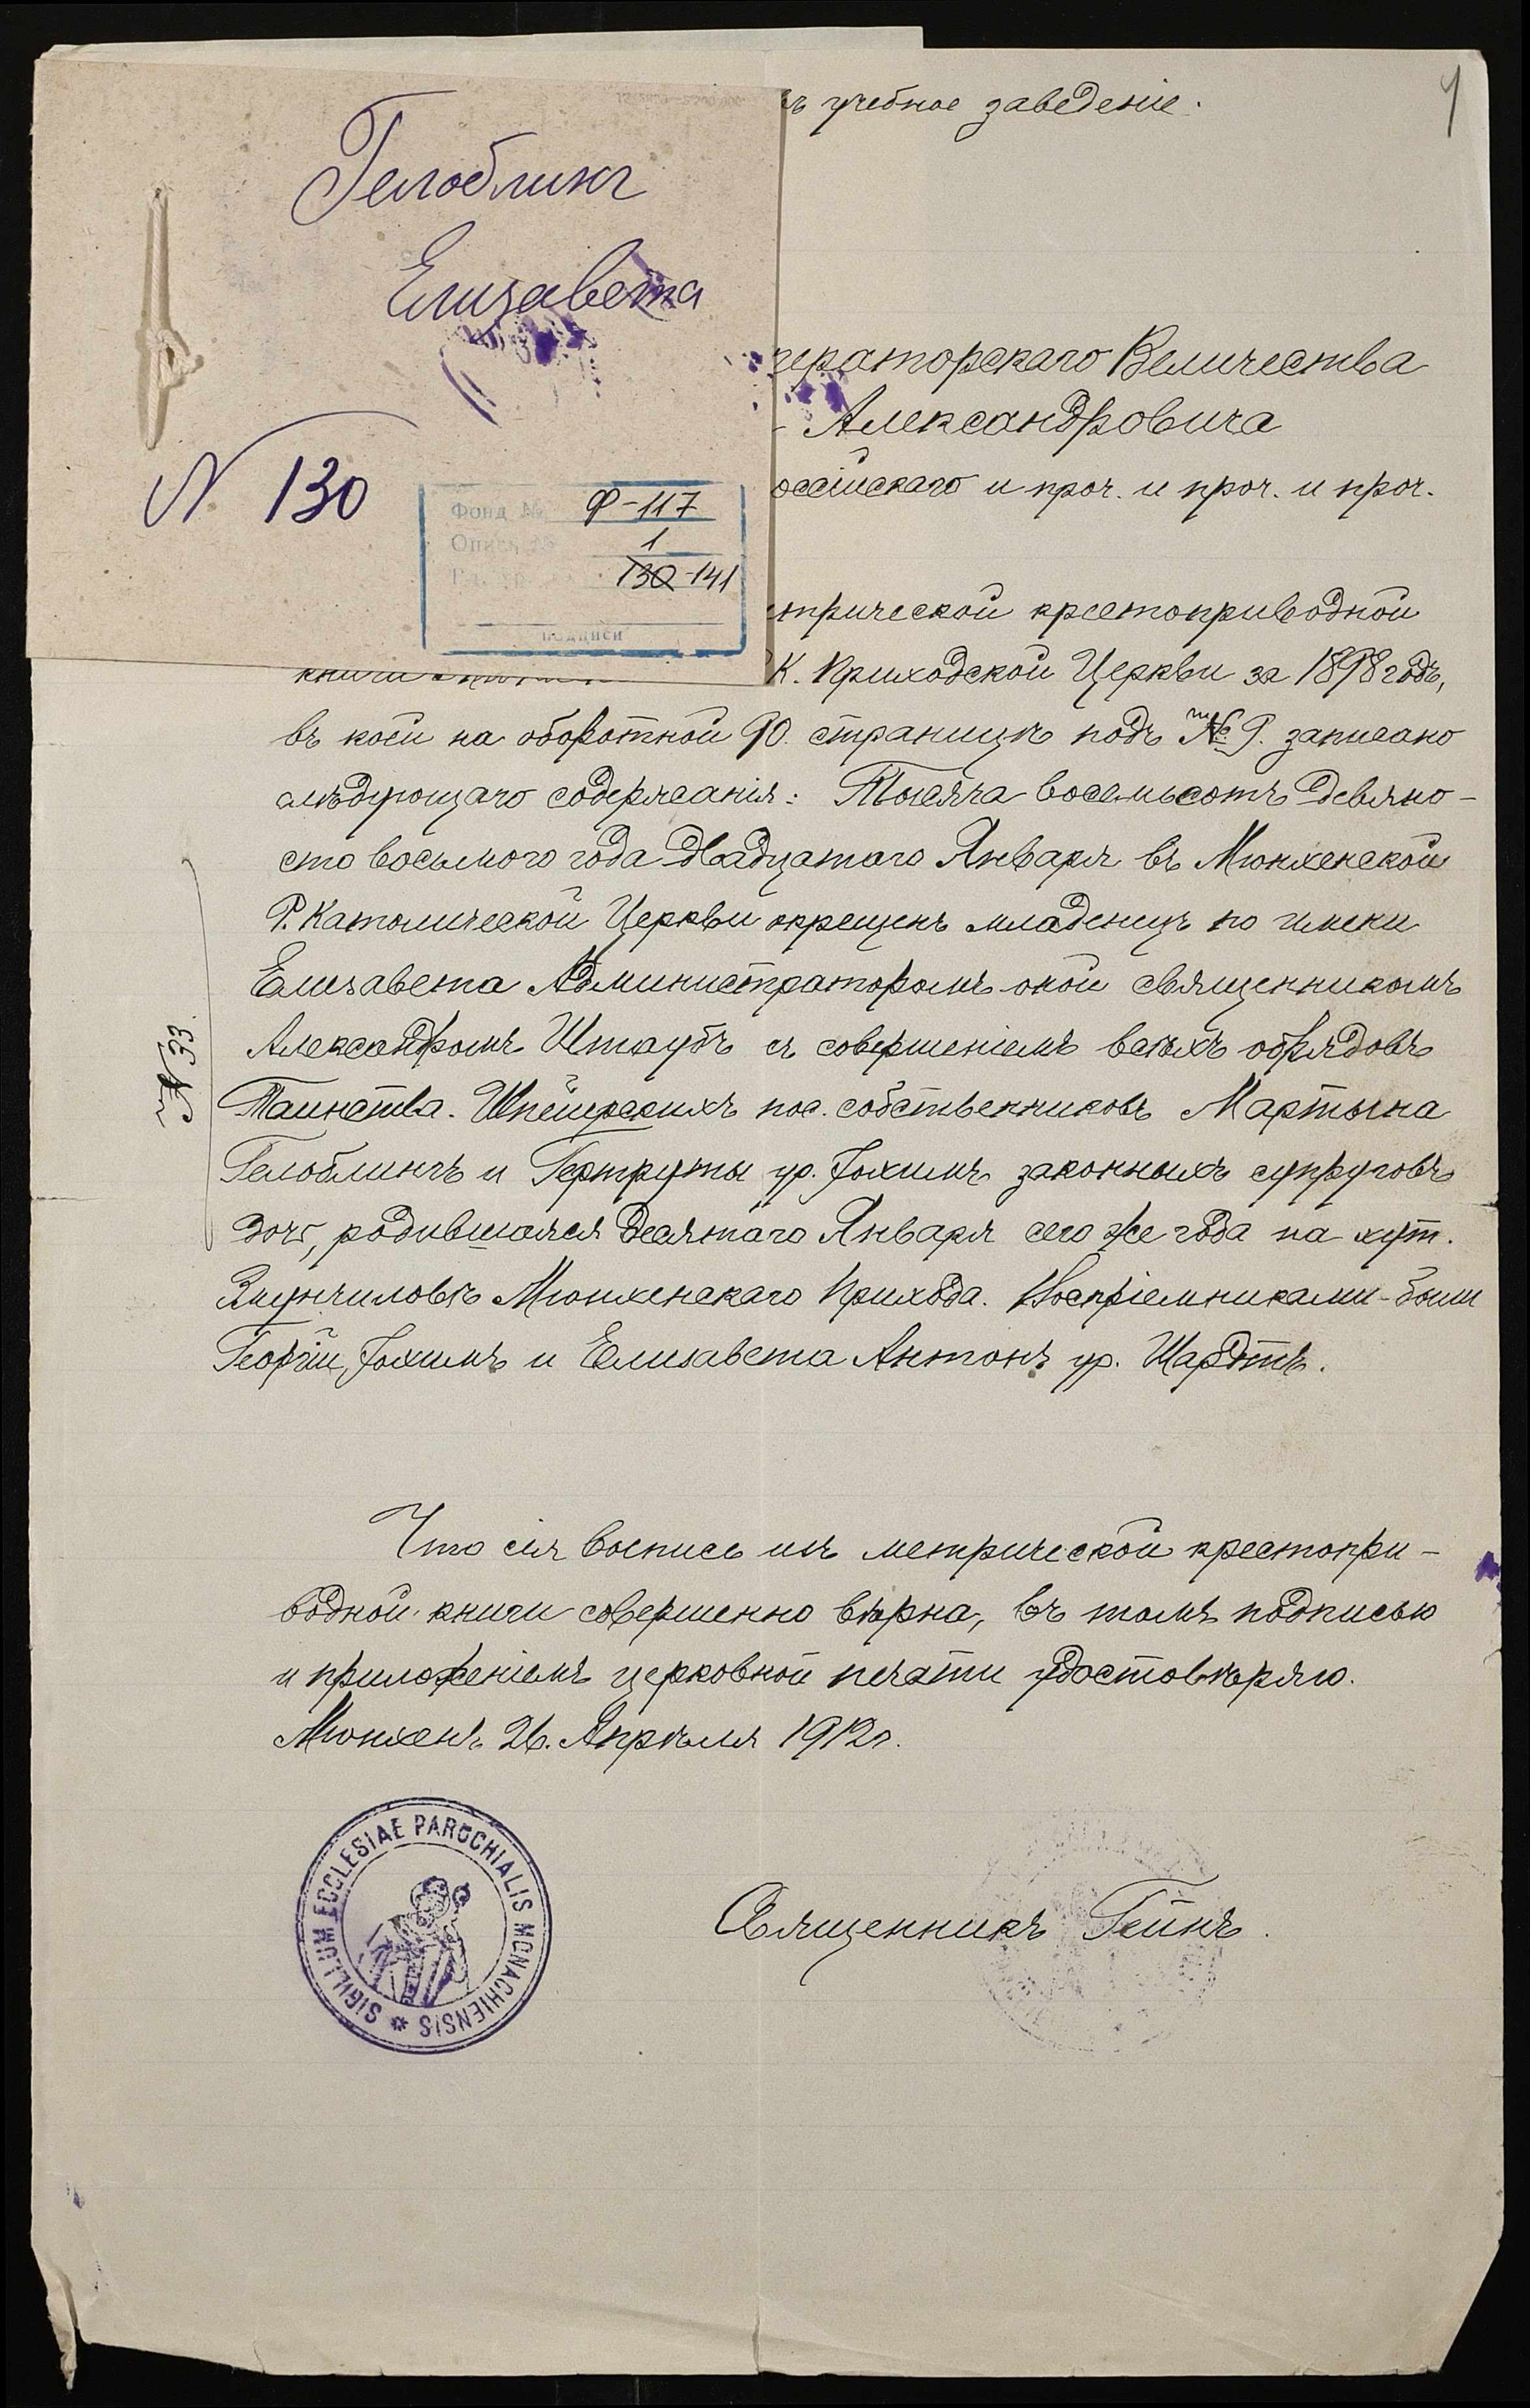 Гелоблинг
Елизавета
N 130
Фонд № Ф-117
Опись № 1
130-141
подписи
учебное заведеніе.
ператорскаго Величества
Александровича
оссійскаго и проч. и проч. и проч.
трической крестоприводной
книги К. Приходской Церкви за 1898 годъ,
въ коей на оборотной 90. страницѣ подъ № 9. записано
слѣдующаго содержанія: Тысяча восемьсотъ девяно-
сто восьмого года двадцатаго Января въ Мюнхенской
Р. Католической Церкви окрещенъ младенецъ по имени
Елизавета Администраторомъ оной священникомъ
Александромъ Штаубъ съ совершеніемъ всѣхъ обрядовъ
N 33.
Таинства. Шпейерскихъ пос. собственниковъ Мартына
Гелоблингъ и Гертруты ур. Іохимъ законныхъ супруговъ
дочь, родившаяся десятаго Января сего же года на хут.
Мюнхенскаго Прихода. Воспріемниками были
Георгій Іохимъ и Елизавета Антонъ ур. Шардтъ.
Что сія выпись изъ метрической крестопри-
водной книги совершенно вѣрна, въ томъ подписью
и приложеніемъ церковной печати удостовѣряю.
Мюнхенъ 26. Апрѣля 1912 г.
SIGILLUM ECCLESIAE PAROCHIALIS MONACHIENSIS
Священникъ Гейнъ.